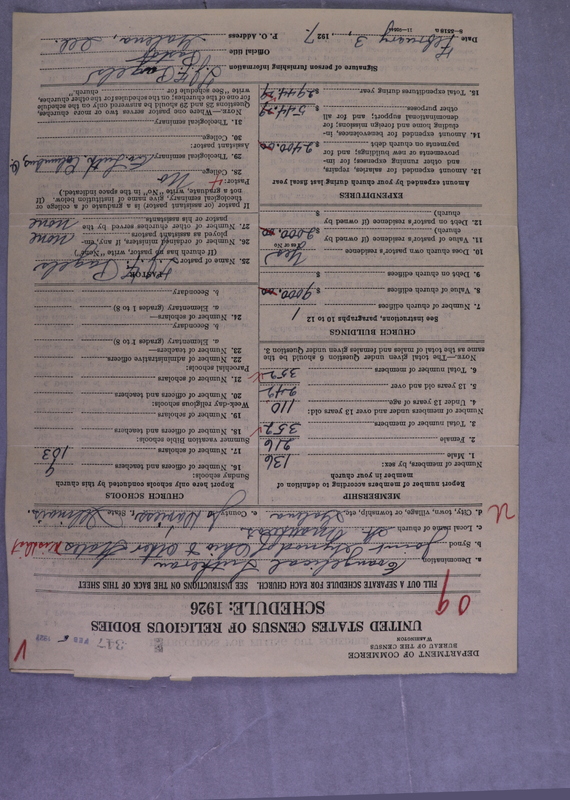 DEPARTMENT OF COMMERCE
BUREAU OF THE CENSUS
WASHINGTON
347
FEB 5 1927
UNITED STATES CENSUS OF RELIGIOUS BODIES
SCHEDULE: 1926
09
FILL OUT A SEPARATE SCHEDULE FOR EACH CHURCH. SEE INSTRUCTIONS ON THE BACK OF THIS SHEET
a. Denomination Evangelical Lutheran
b. Synod Joint Synod of Ohio & Other States
c. Local name of church St.
d. City, town, village, or township, etc. Galena e. County Jo Daviess f. State Illinois
MEMBERSHIP
Report number of members according to definition of member in your church
Number of members, by sex:
1. Male 136
2. Female 216
3. Total number of members 352
Number members under and over 13 years old:
4. Under 13 years of age 110
5. 13 years old and over 242
6. Total number of members 352
NOTE.—The total given under Question 6 should be the same as the total of males and females given under Question 3.
CHURCH BUILDINGS
See instructions, paragraphs 10 to 12
7. Number of church edifices 1
8. Value of church edifices $ 9000.00
9. Debt on church edifices $
10. Does church own pastor's residence Yes
(Yes or No)
11. Value of pastor's residence (if owned by church) $ 2000.00
12. Debt on pastor's residence (if owned by church) $
EXPENDITURES
Amount expended by your church during last fiscal year
13. Amount expended for salaries, repairs, and other running expenses; for improvements or new buildings; and for payments on church debt $ 2400.00
14. Amount expended for benevolences, including home and foreign missions; for denominational support; and for all other purposes $ 544.79
15. Total expenditures during year $ 2944.79
CHURCH SCHOOLS
Report here only schools conducted by this church
Sunday schools:
16. Number of officers and teachers 9
17. Number of scholars 103
Summer vacation Bible schools:
18. Number of officers and teachers
19. Number of scholars
Week-day religious schools:
20. Number of officers and teachers
21. Number of scholars
Parochial schools:
22. Number of administrative officers
23. Number of teachers—
a. Elementary (grades 1 to 8)
b. Secondary
24. Number of scholars—
a. Elementary (grades 1 to 8)
b. Secondary
PASTOR
25. Name of pastor (if no pastor, write "No")
26. Number of ordained ministers, if any, employed as assistant pastors none
27. Number of other churches served by the pastor or his assistants none
If pastor (or assistant pastor) is a graduate of a college or theological seminary, give name of institution below. (If not a graduate, write "No" in the space indicated.)
Pastor:
28. College No
29. Theological seminary Ev. Luth. Columbus, O.
Assistant Pastor:
30. College
31. Theological seminary
NOTE.—Where one pastor serves two or more churches, Questions 28 and 29 should be answered only on the schedule for one of the churches; on the schedules for the other churches, write "See schedule for church."
Signature of person furnishing information
Official title Pastor
P. O. Address Galena, Ill.
Date February 3, 1927.